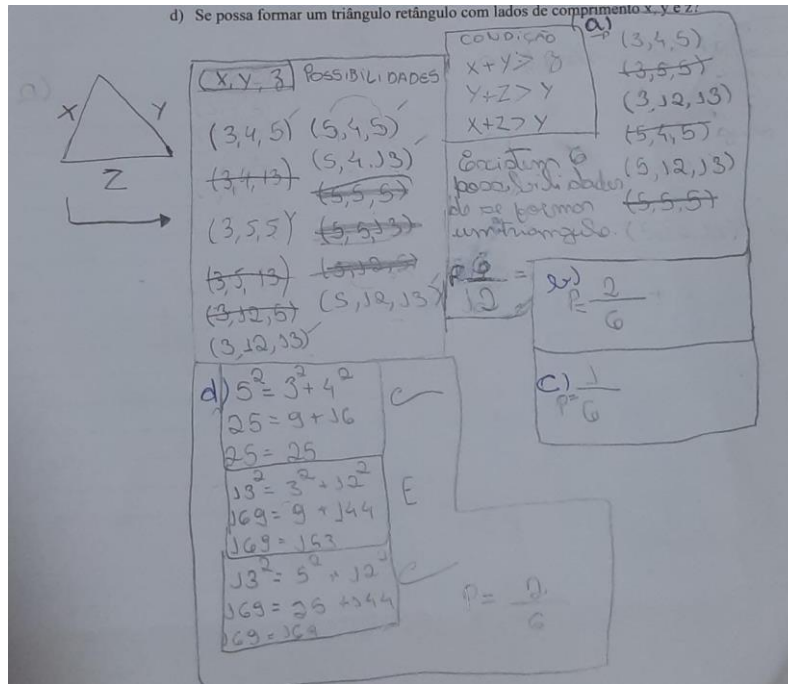 d) Se possa formar um triângulo retângulo com lados de comprimento x, y e z?
a)
X Y
Z
(X, Y, z) POSSIBILIDADES
(3,4,5) (5,4,5)
(3,4,13) (5,4,13)
(3,5,5) (5,5,5)
(3,5,13) (5,5,13)
(3,12,5) (5,12,5)
(3,12,13) (5,12,13)
CONDIÇÃO
X+Y> z
Y+Z>Y
X+Z>Y
a)
(3,4,5)
(3,5,5)
(3,12,13)
(5,4,5)
(5,12,13)
(5,5,5)
Existem 6
possibilidades
de se formar
um triangulo.
P 6/12 =
b)
P= 2/6
c)
P= 1/6
d) 5²= 3²+4²
25= 9+16
25= 25
C
13²= 3²+12²
169= 9+144
169= 153
E
13²= 5²+12²
169= 25+144
169=169
C
P= 2/6